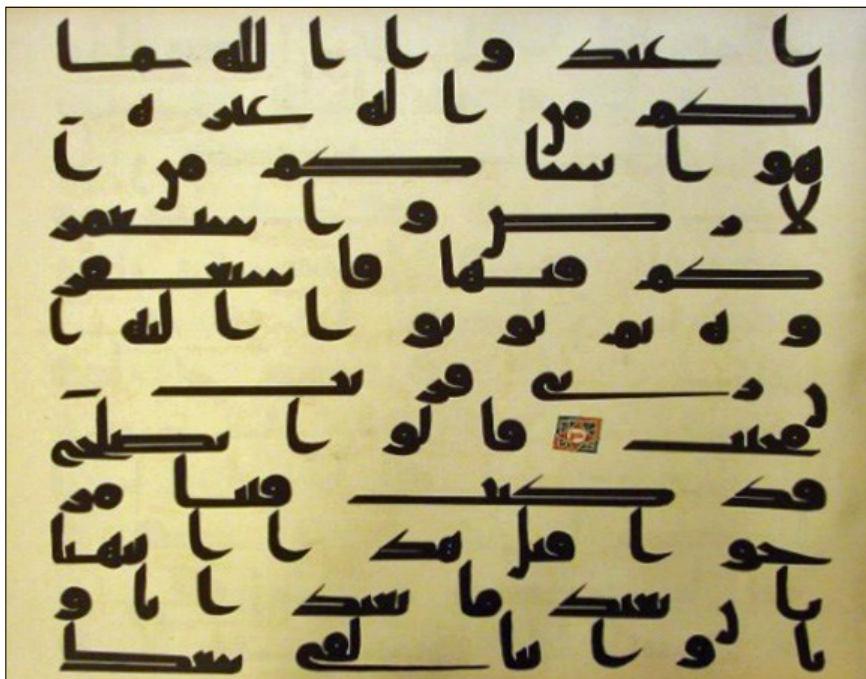 اعبدوا الله ما
لكم من اله غيره
هو انشاكم من ا
لارض واستعمر
كم فيها فاستغفر
وه ثم توبوا اليه ا
ن ربي قريب
مجيب قالوا يصلح
قد كنت فينا مر
جوا قبل هدا اتنهينا
ان نعبد ما يعبد اباو
نا واننا لفي شك